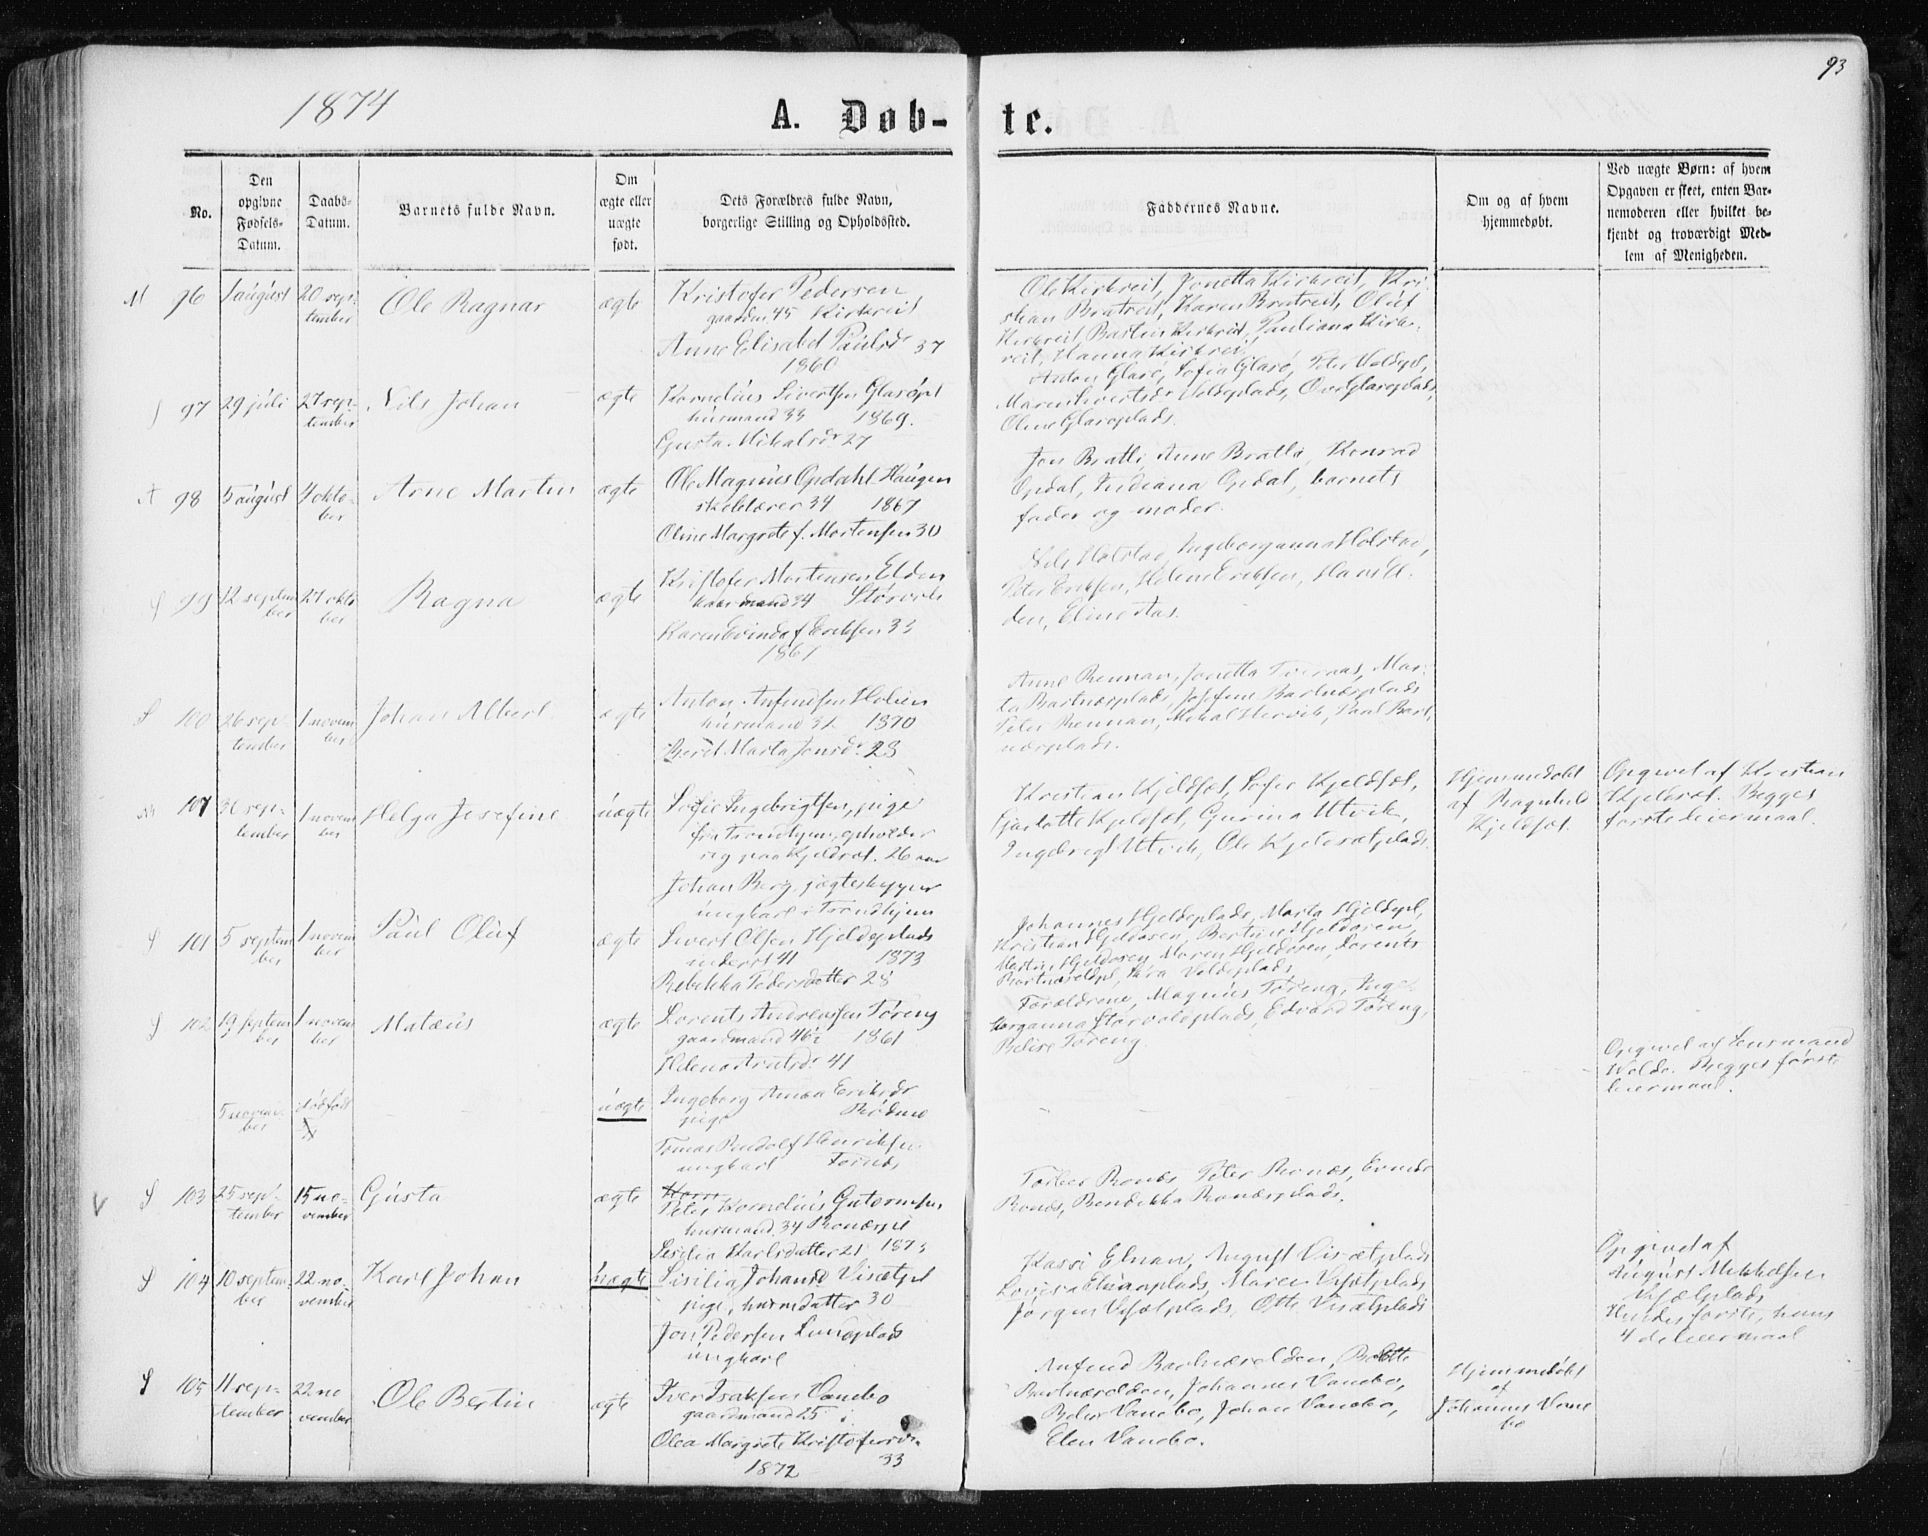 1874
93
A. Døb-
te.
No.
Den
opgivne
Fødsels-
Datum.
Daabs-
Datum.
Barnets fulde Navn.
Om
ægte eller
uægte
født.
Dets Forældres fulde Navn,
borgerlige Stilling og Opholdssted.
Faddernes Navne.
Om og af hvem
hjemmedøbt.
Ved uægte Børn: af hvem
Opgaven er skeet, enten Bar-
nemoderen eller hvilket be-
kjendt og troværdigt Med-
lem af Menigheden.
M 96
1 august
20 sep-
tember
Ole Ragnar
ægte
Kristofer Pedersen
gaardm. 45 Kirkreit
Anne Elisabet Paulsdr 37
1860
Ole Kirkreit, Jonetta Kirkreit, Kri-
stian Bratreit, Karen Bratreit, Oluf
Kirkreit, Bastin Kirkreit, Pauliana Kirk-
reit, Hanna Kirkreit.
S 97
29 juli
27 sep-
tember
Nils Johan
ægte
Kornelius Sivertsen Glasøpl
husmand 33 1869.
Gusta Mikalsdr 27
Anton Glasø, Sofia Glasø, Peter Valdepl,
Maren Sivertsdr Valdeplads, Ove Glasøplads,
Oline Glasøplads.
A 98
5 august
4 okto-
ber
Arne Martin
ægte
Ole Magnus Opdahl Haugen
skolelærer 34 1867
Oline Margrete f. Mortensen 30
Jon Bratli, Anne Bratli, Konrad
Opdal, Indiana Opdal, barnets
fader og moder.
S 99
12 septem
ber
27 okto
ber
Ragna
ægte
Kristofer Mortensen Elden
gaardmand 34 Størvik
Karen Evinda f. Eriksen 33
1861
Nils Holstad, Ingeborganna Holstad,
Peter Eriksen, Helene Eriksen, Hans El-
den, Eline Aas.
S 100
26 sep-
tember
1 novem
ber
Johan Albert
ægte
Anton Anfindsen Holien
husmand 32 1870
Berit Marta Jonsdr 28
Anne Rennan, Jonetta Tveraas, Mar-
ta Bartnæsplads, Josefine Bartnæsplads
Peter Rennan, Mikal Hervik, Paul Bart-
næsplads.
M 101
30 sep-
tember
1 novem
ber
Helga Josefine
uægte
Sofie Ingebrigtsen, pige
fra Trondhjem, opholder
sig paa Kjeldsæt. 26 aar
Johan Berg, jægteskipper
ungkarl i Trondhjem
Kristian Kjeldsæt, Sofie Kjeldsæt,
Sjarlotte Kjeldsæt, Gurina Utvik,
Ingebrigt Utvik, Ole Kjeldsætplads.
Hjemmedøbt
af Ragnhild
Kjeldsæt.
Opgivet af Kristian
Kjeldsæt. Begges
første leiermaal.
S 101
5 septem
ber
1 novem
ber
Paul Oluf
ægte
Sivert Olsen Hjeldeplads
inderst 41 1873
Rebekka Pedersdatter 28
Johannes Hjeldeplads, Marta Hjeldepl,
Kristian Hjeldøren, Bertine Hjeldøren,
Martin Hjeldøren, Maren Hjeldøren, Lorents
S 102
19 septem
ber
1 novem
ber
Matæus
ægte
Lorents Andreassen Føreng
gaardmand 46½ 1861
Helena Arntsdr 41
Forældrene, Magnus Føreng, Inge-
borganna Størvoldplads, Edvard Føreng,
Belise Føreng.
5 novem-
ber
dødfødt
uægte
Ingeborg Anna Eriksdr
pige Rødmo
Tomas Rudolf Henriksen
ungkarl
Opgivet af Lensmand
Wolde. Begges første
leiermaal.
S 103
25 sep-
tember
15 no-
vember
Gusta
ægte
Peter Kornelius Gutormsen,
husmand 34 Ronæspl
Sesilia Karlsdatter 21 1873
Ronæs, Bendikka Ronæsplads.
S 104
10 septem-
ber
22 no-
vember
Karl Johan
uægte
Sisilia Johansd. Visætpl
pige, husmdatter 30
Jon Pedersen Lundplads
ungkarl
Lovisa Elnanplads, Maren Visætplads
Jørgen Visætplads, Otte Visætplads
Opgivet af
August Mikkelsen
Visætplads
Hendes første, hans
4 de leiermaal
S 105
11 sep-
tember
22 no
vember
Ole Bertin
ægte
Iver Isaksen Vanebo
gaardmand 25
Olea Margrete Kristofersdr
1872 33
Anfind Bartnæselden, Beret
Bartnæselden, Johannes Vanebo,
Belise Vanebo, Johan Vanebo,
Elen Vanebo.
Hjemmedøbt
af
Johannes Vane
bo